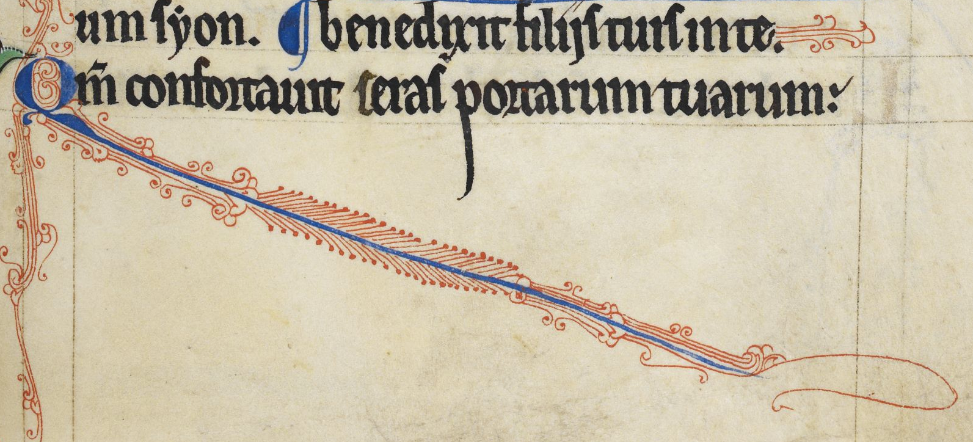 um syon. ¶ benedixit filijs tuis in te.
Qm̃ confortauit seras portarum tuarum: